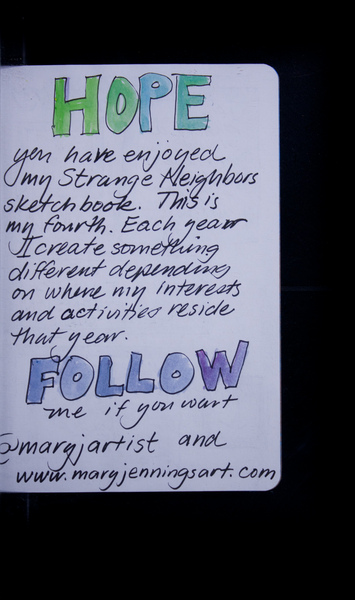 HOPE
you have enjoyed
my Strange Neighbors
sketchbook. This is
my fourth. Each year
I create something
different depending
on where my interests
and activities reside
that year.
FOLLOW
me if you want
@maryjartist and
www.maryjenningsart.com